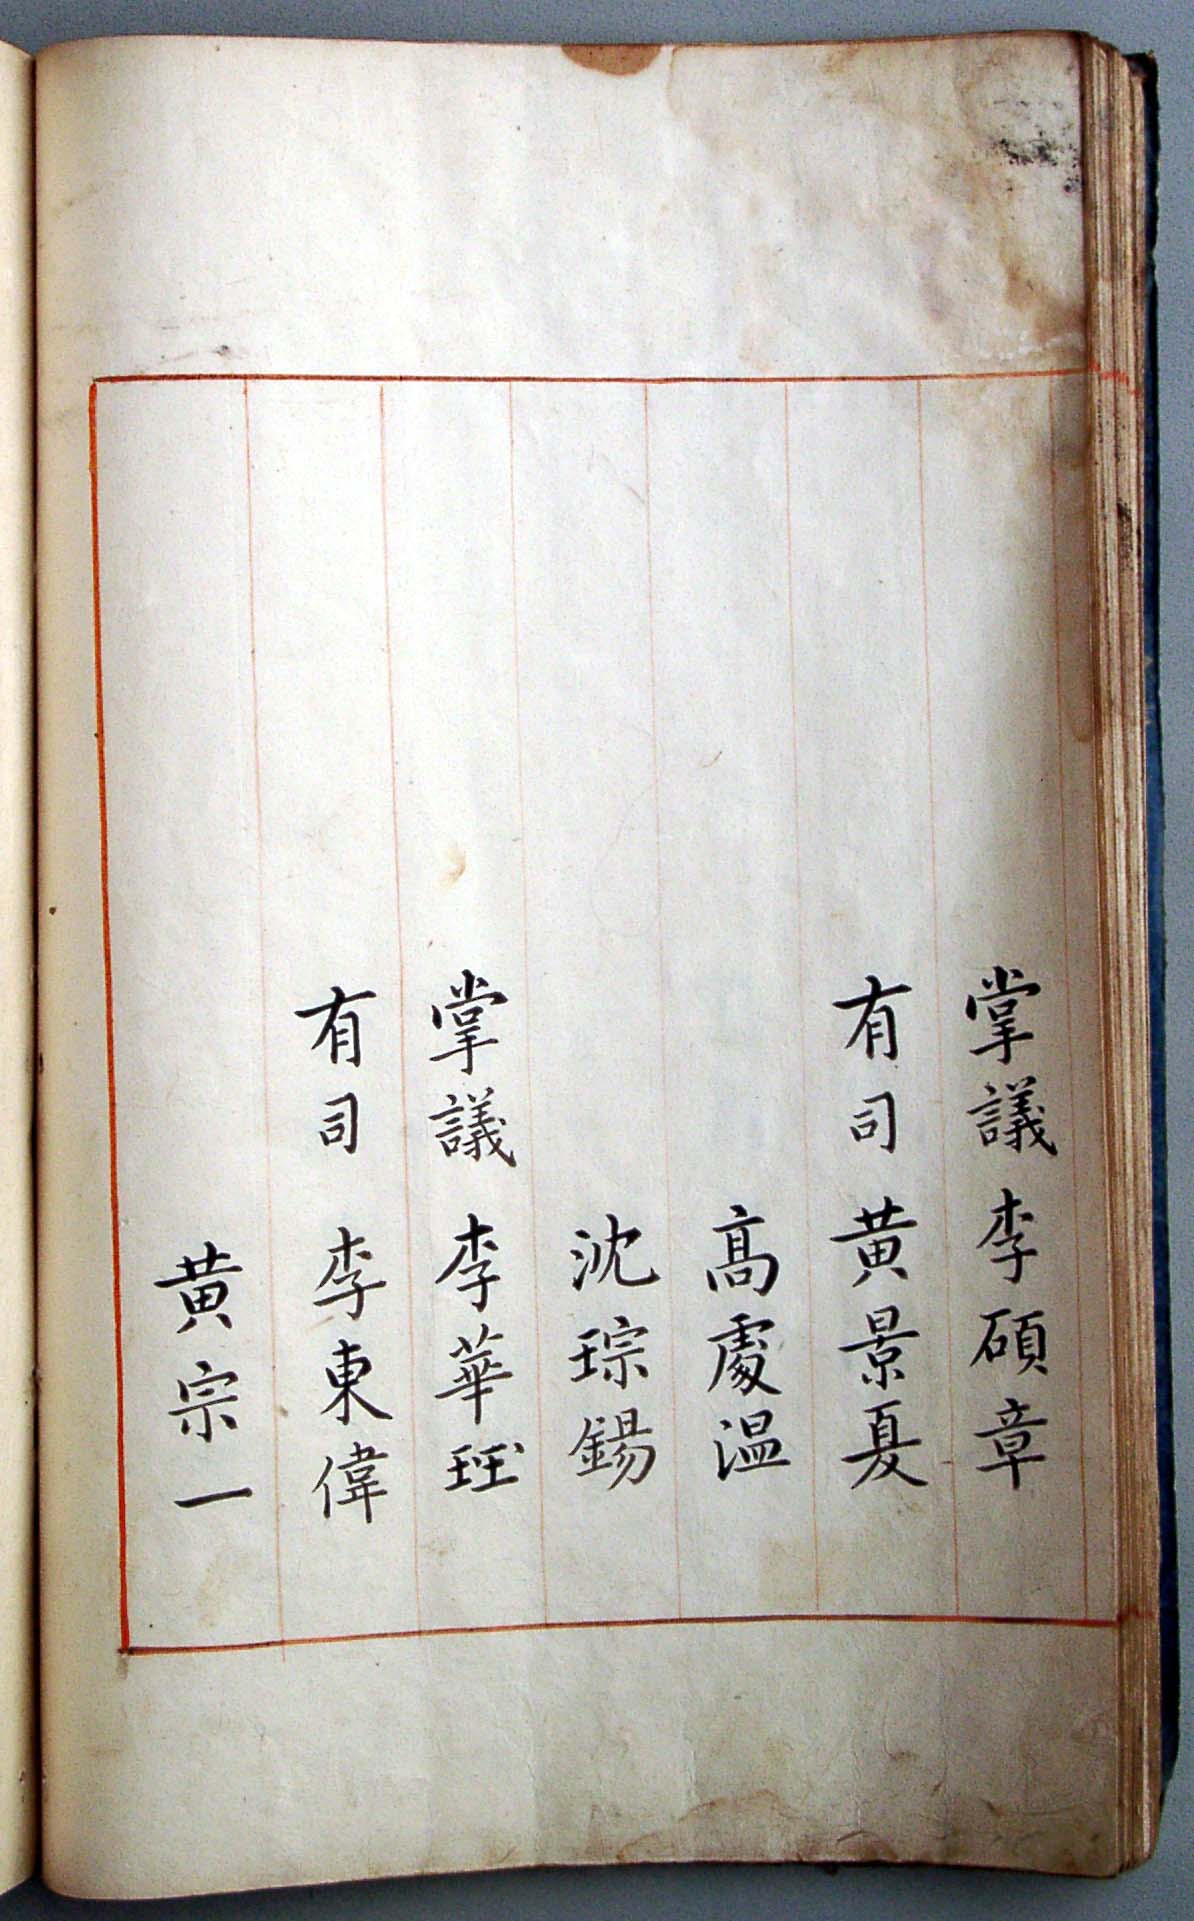 掌議 李碩章
有司 黄景夏
高處温
沈琮錫
掌議 李華珏
有司 李東偉
黄宗一